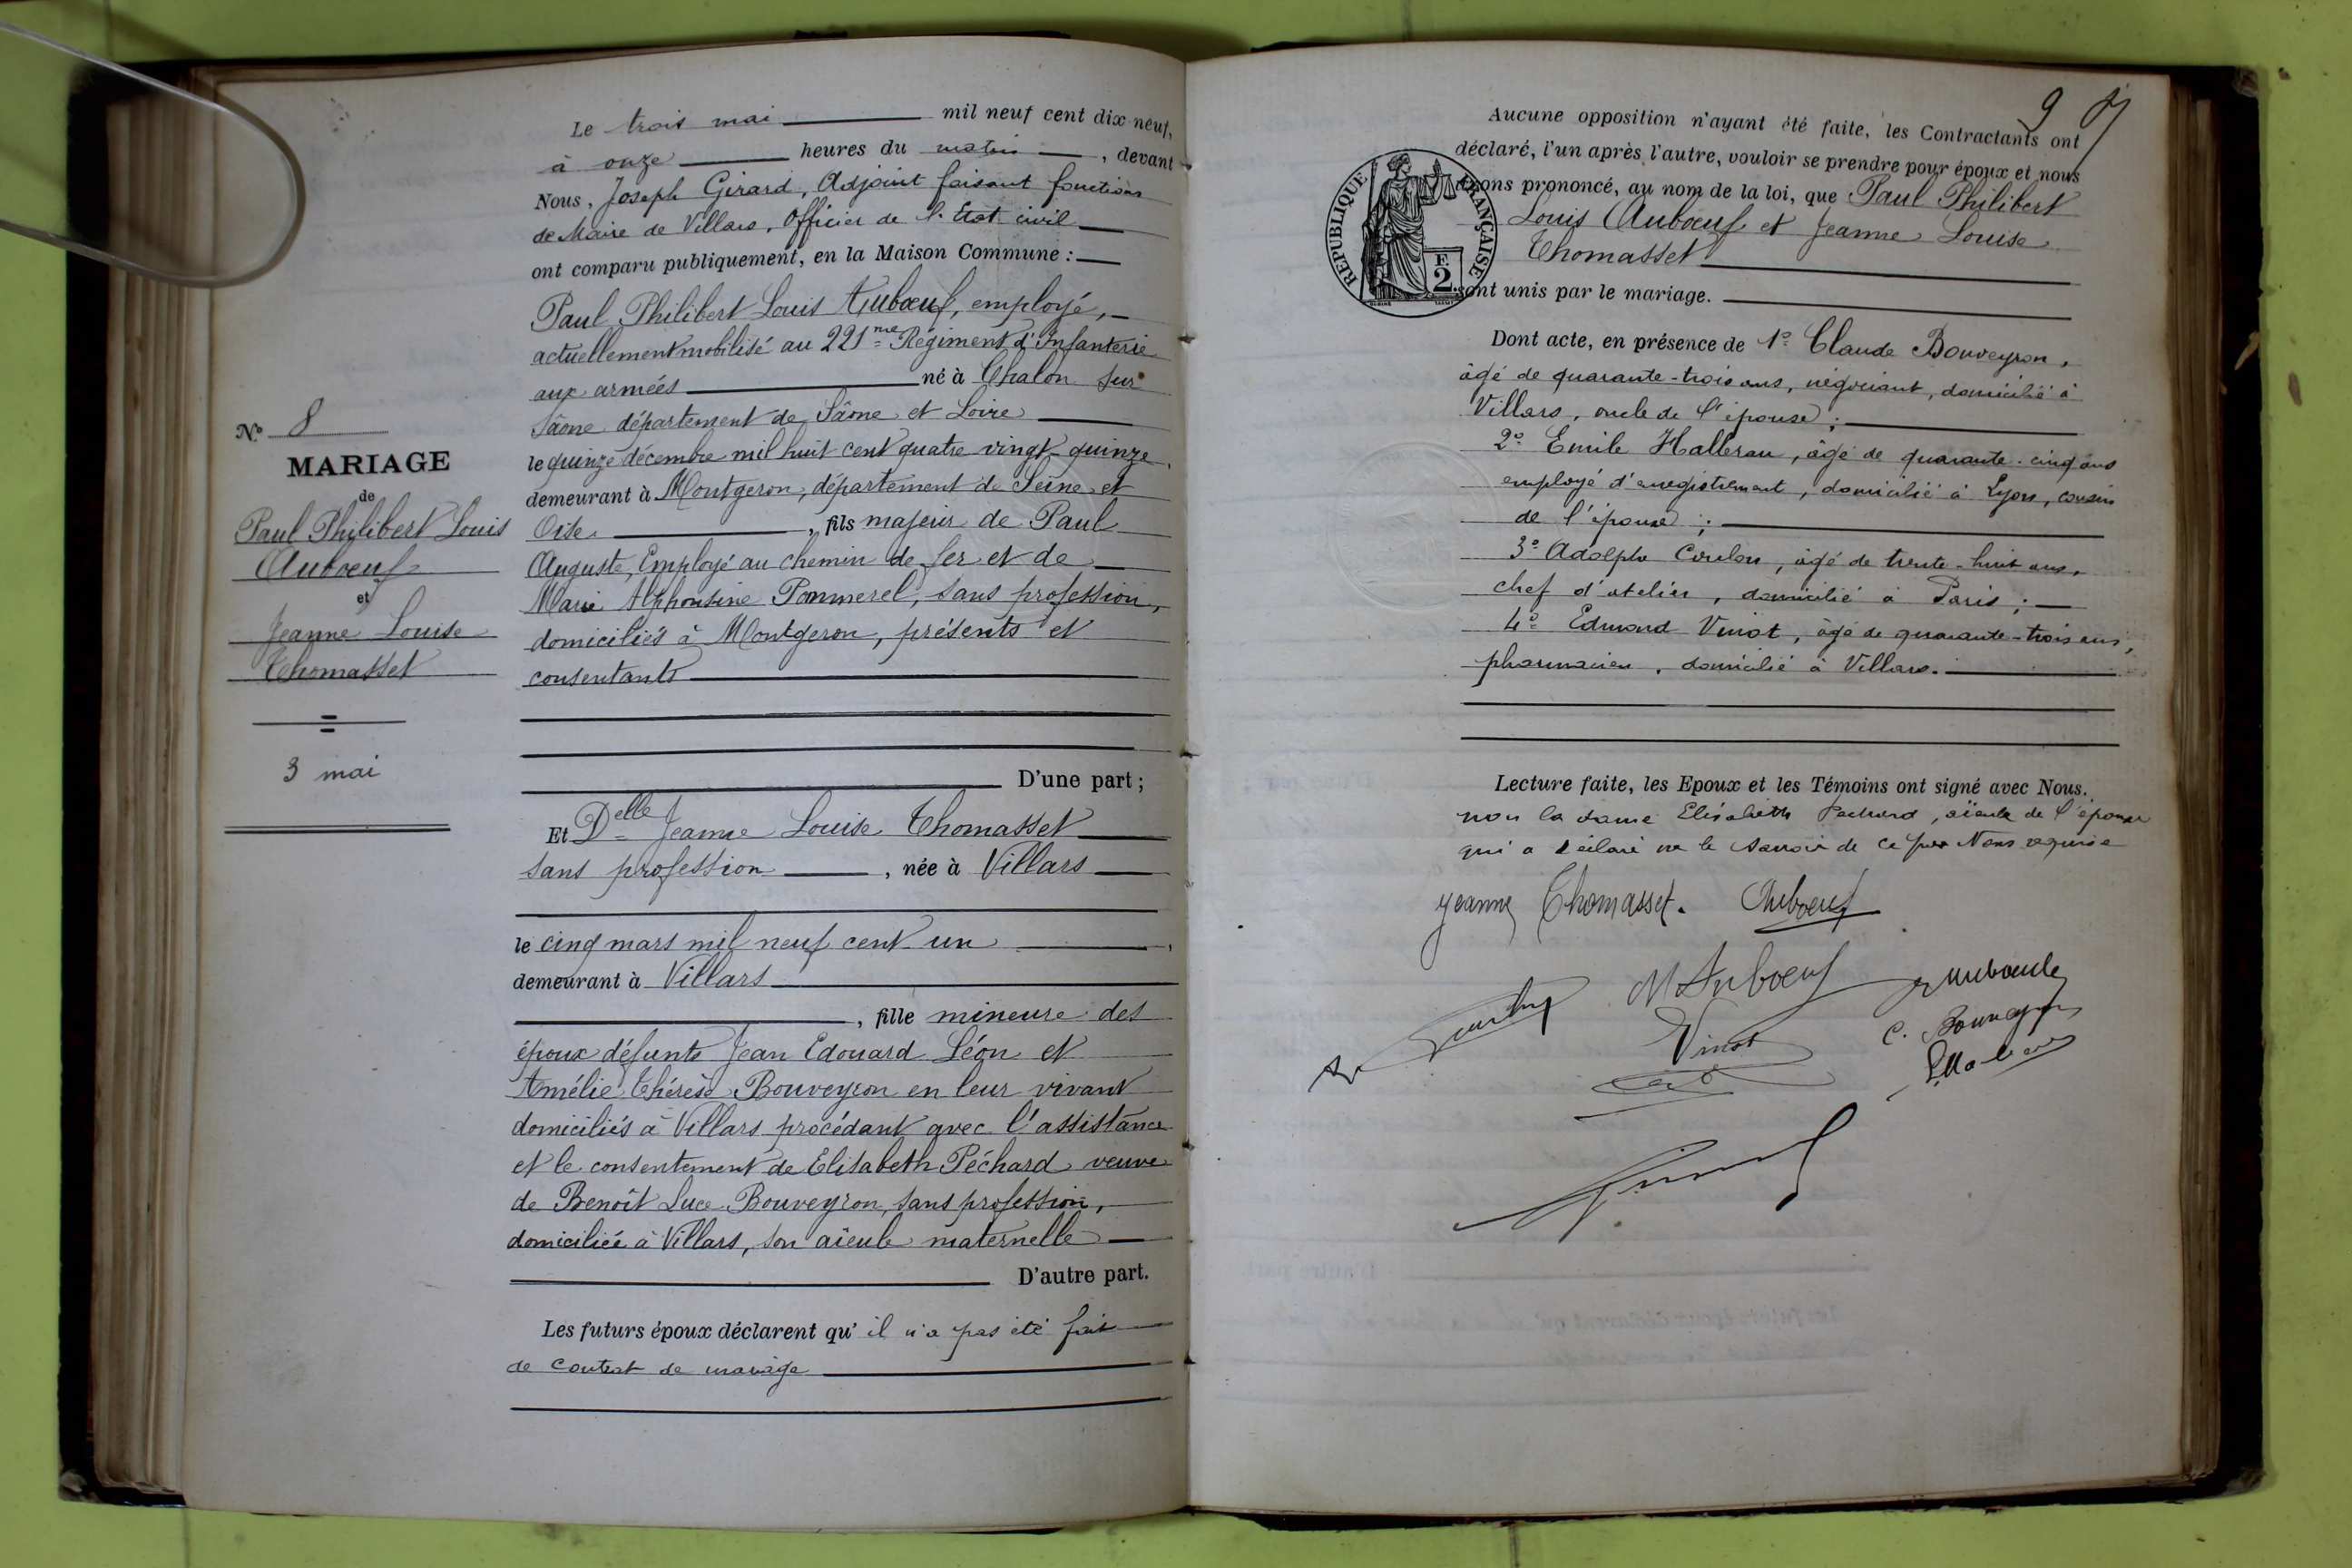 Le trois mai mil neuf cent dix-neuf,
à onze heures du matin, devant
Nous, Joseph Girard, Adjoint faisant fonctions
de Maire de Villars, Officier de l'Etat civil
ont comparu publiquement, en la Maison Commune :
Paul Philibert Louis Aubœuf, employé,
actuellement mobilisé au 221me Régiment d'Infanterie
aux armées né à Chalon sur
Sâone département de Sâone et Loire
le quinze décembre mil huit cent quatre vingt-quinze,
demeurant à Montgeron, département de Seine et
Oise, fils majeur de Paul
Auguste, Employé au chemin de fer et de
Marie Alphonsine Pommerel, sans profession,
domiciliés à Montgeron, présents et
consentants
D'une part ;
Et Delle Jeanne Louise Thomasset
sans profession, née à Villars
le cinq mars mil neuf cent un,
demeurant à Villars
, fille mineure des
époux défunts Jean Edouard Léon et
Amélie Thérèse Bouveyron en leur vivant
domiciliés à Villars procédant avec l'assistance
et le consentement de Elisabeth Péchard veuve
de Benoît Luce Bouveyron, sans profession,
domiciliée à Villars, son aïeule maternelle
D'autre part.
Les futurs époux déclarent qu'il n'a pas été fait
de contrat de mariage
No 8
MARIAGE
de
Paul Philibert Louis
Aubœuf
et
Jeanne Louise
Thomasset
3 mai
9
Aucune opposition n'ayant été faite, les Contractants ont
déclaré, l'un après l'autre, vouloir se prendre pour époux et nous
avons prononcé, au nom de la loi, que Paul Philibert
Louis Aubœuf et Jeanne Louise
Thomasset
sont unis par le mariage.
RÉPUBLIQUE FRANÇAISE
F.
2.
Dont acte, en présence de 1o Claude Bouveyron,
âgé de quarante-trois ans, négociant, domicilié à
Villars, oncle de l'épouse ;
2o Emile Hallerau, âgé de quarante-cinq ans
employé d'enregistrement, domicilié à Lyon, cousin
de l'épouse ;
3o Adolphe Coulon, âgé de trente-huit ans,
chef d'atelier, domicilié à Paris ;
4o Edmond Vinot, âgé de quarante-trois ans,
pharmacien, domicilié à Villars.
Lecture faite, les Epoux et les Témoins ont signé avec Nous.
non la dame Elisabeth Pechard, aïeule de l'épouse
qui a déclaré ne le savoir de ce par Nous requise
Jeanne Thomasset. Aubœuf
M Aubœuf
Vinot
C. Bouveyron